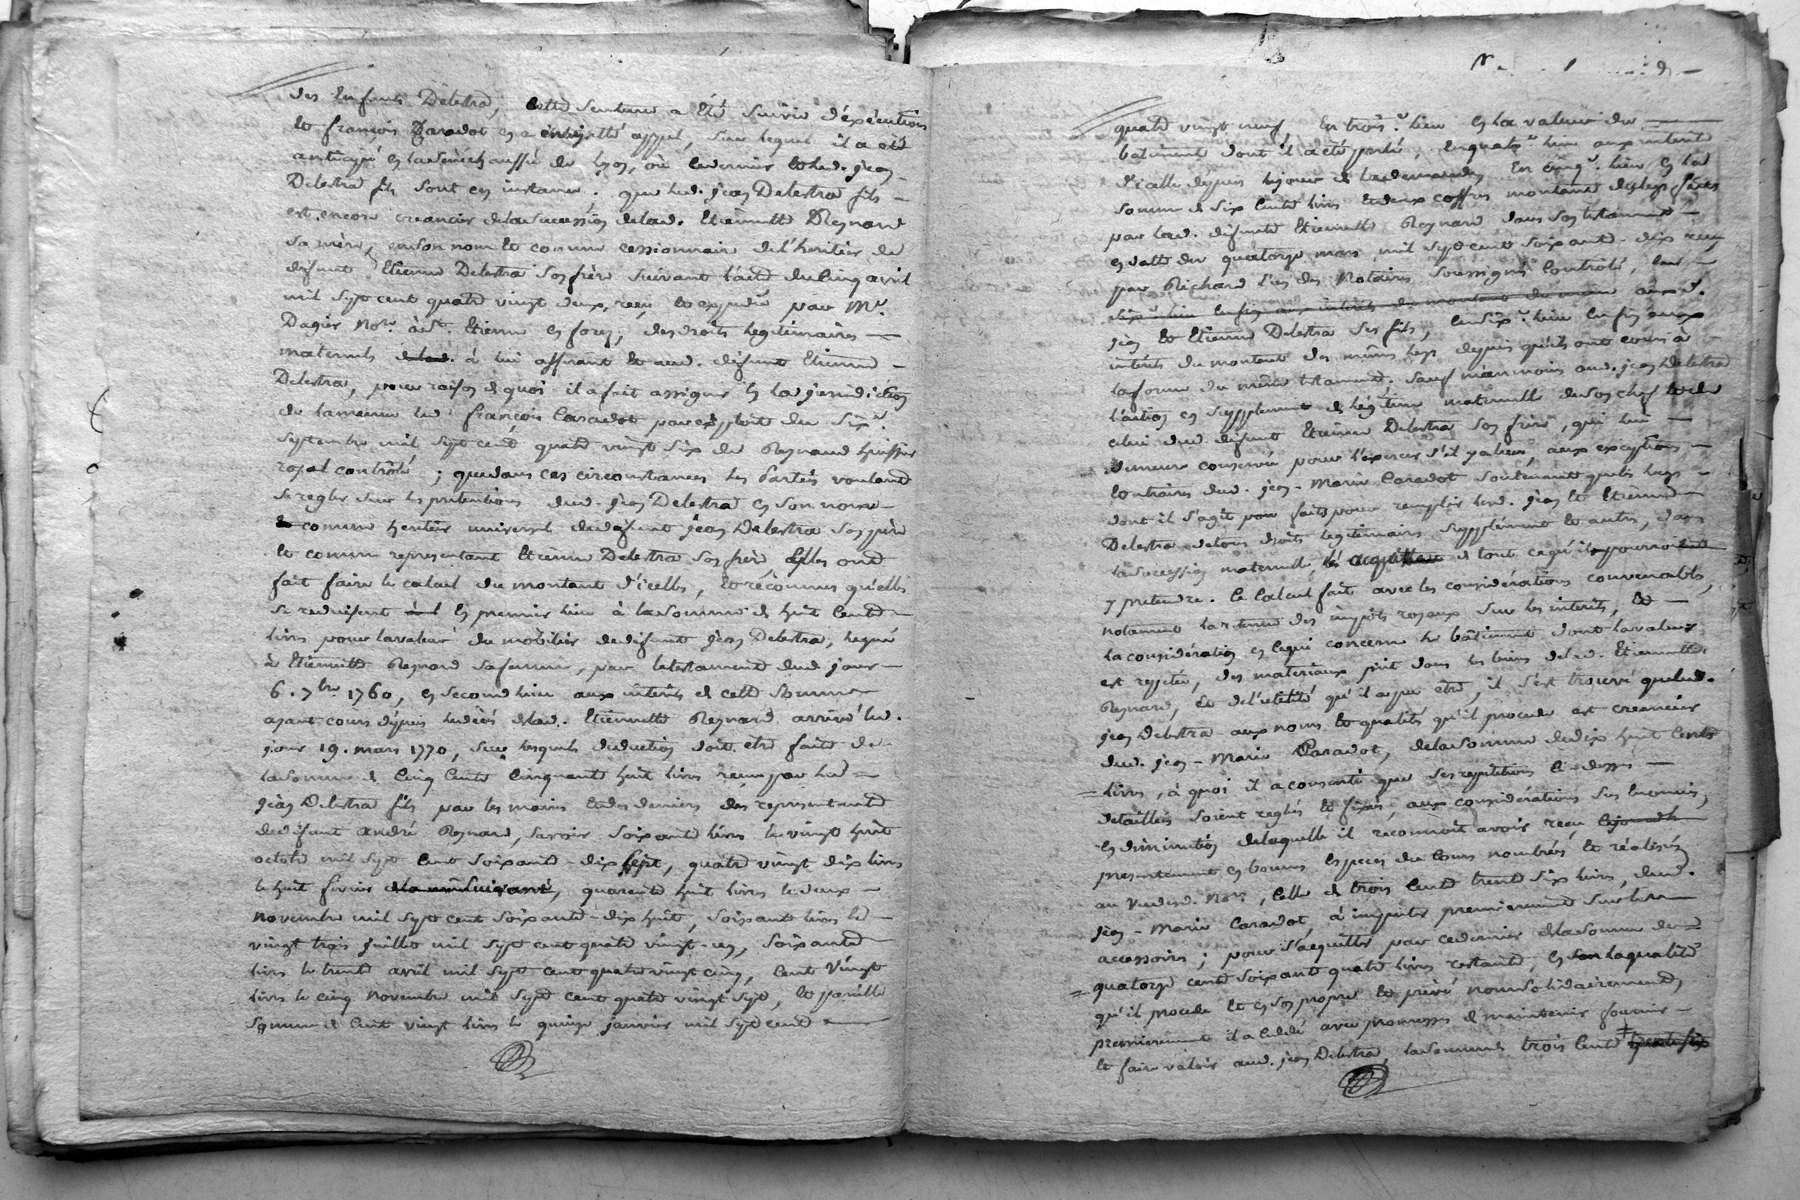 des Enfants Delestra, cette sentence a été suivie d'éxécution
le françois Caradot en a interjetté appel, sur lequel il a été
anticipé en la sénéchaussée de Lyon, où ce dernier et led. jean
Delestra fils sont en instance; que led. jean Delestra fils
est encore creancier de la succession de lad. Etiennette Reynard
sa mère, en son nom et comme cessionnaire de l'heritier de
défunt Etienne Delestra son frère suivant l'acte du cinq avril
mil sept cent quatre vingt deux, reçu et expédié par Me.
Dagier Nore. à St. Etienne en forez, des droits legitimaires
maternels à lui afferant et aud. défunt Etienne
Delestra, pour raison de quoi il a fait assigner en la jurisdiction
de led. françois Caradot par exploit du six
septembre mil sept cent quatre vingt six de Reynaud huissier
royal contrôlé; que dans ces circonstances les parties voulant
se regler sur les prétentions dud. jean Delestra en son nom
et comme heritier universel dud. défunt jean Delestra son père
et comme representant Etienne Delestra son frère, Elles ont
fait faire le calcul du montant d'icelles, et reconnu qu'elles
se reduisent en premier lieu à la somme de huit cents
livres pour la valeur du mobilier dud. défunt jean Delestra, legué
à Etiennette Reynard sa femme, par le testament dud. jour
6. 7bre 1760, en second lieu aux intérêts de cette somme
ayant cours depuis le décès de lad. Etiennette Reynard arrivé led.
jour 19. mars 1770, sur lesquels déduction doit être faite de
la somme de cinq cents cinquante huit livres reçue par led.
jean Delestra fils par les mains et des deniers des representants
de défunt andré Reynard, savoir soixante livres le vingt huit
octobre mil sept cent soixante-dix sept, quatre vingt dix livres
le huit fevrier suivant, quarante huit livres le deux
novembre mil sept cent soixante-dix huit, soixante livres le
vingt trois juillet mil sept cent quatre vingt-un, soixante
livres le trente avril mil sept cent quatre vingt cinq, cent vingt
livres le cinq novembre mil sept cent quatre vingt sept, et pareille
somme de cent vingt livres le quinze janvier mil sept cent
quatre vingt neuf, En trois. lieu en la valeur du
bâtiment dont il a été parlé, En quatr. lieu aux intérêts
d'icelle depuis le jour de la demande, En cinq. lieu en la
somme de six cents livres et deux coffres montant des legs faits
par lad. défunte Etiennette Reynard dans son testament
en datte du quatorze mars mil sept cent soixante-dix reçu
par Richard l'un des Notaires soussignés Contrôlé,
six. lieu enfin aux intérêts du montant du même aux d.
jean et Etienne Delestra ses fils, En six. lieu enfin aux
intérêts du montant des mêmes legs depuis qu'ils ont couru à
la forme du même testament. Sauf néanmoins aud. jean Delestra
l'action en supplément de légitime maternelle de son chef et de
celui dud. défunt Etienne Delestra son frère, qui lui
demeure conservée pour l'exercer s'il y a lieu, aux exceptions
contraires dud. jean-Marie Caradot soutenant que les legs
dont il s'agit sont faits pour remplir lesd. jean et Etienne
Delestra de tous droits légitimaires supplément et autres, dans
la succession maternelle, de tout ce qu'ils pourroient
y prétendre. Ce calcul fait avec les considérations convenables,
notament la retenue des impôts royaux sur les intérêts, et
la considération en ce qui concerne le bâtiment dont la valeur
est repetée, des matériaux pris dans les biens de lad. Etiennette
Reynard, et de l'utilité qu'il a pu être, il s'est trouvé que led.
jean Delestra aux noms et qualités qu'il procede est creancier
dud. jean-Marie Caradot, de la somme de dix huit cents
livres, à quoi il a consenti que ses répétitions ci-dessus
détaillées soient reglées et fixées, aux considérations sus énoncées,
en diminution de laquelle il reconnoit avoir reçu
présentement en bonnes especes du cours nombrées et réalisées
au vu desd. Nores., celle de trois cents trente six livres, dud.
jean-Marie Caradot, à imputer premierement sur les
accessoires; pour s'acquitter par ce dernier de la somme de
quatorze cents soixante quatre livres restante, en la qualité
qu'il procede et en son propre et privé nom solidairement,
premierement il a cédé avec promesses de maintenir fournir
et faire valoir aud. jean Delestra, la somme de trois cents